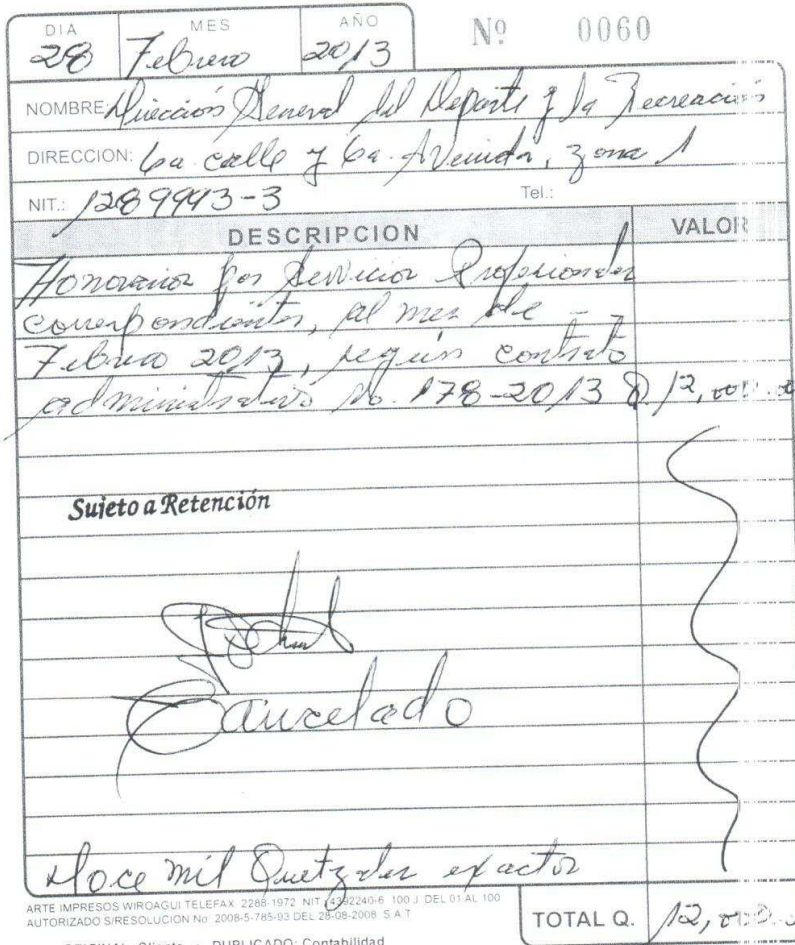 DIA MES AÑO
28 Febrero 2013 Nº 0060
NOMBRE: Dirección General del Deporte y la Recreación
DIRECCION: 6a calle y 6a. Avenida, zona 1
NIT.: 1289993-3 Tel.:
DESCRIPCION VALOR
Honorarios por Servicios Profesionales
correspondientes, al mes de
Febrero 2013, según contrato
administrativo No. 178-2013 Q. 12,000.00
Sujeto a Retención
Cancelado
Doce mil Quetzales exactos
ARTE IMPRESOS WIROAGUI TELEFAX 2288-1972 NIT 4392240-6 100 J DEL 01 AL 100
AUTORIZADO S/RESOLUCION No. 2008-5-785-93 DEL 28-08-2008 S.A.T
TOTAL Q. 12,000.0
ORIGINAL: Cliente DUPLICADO: Contabilidad